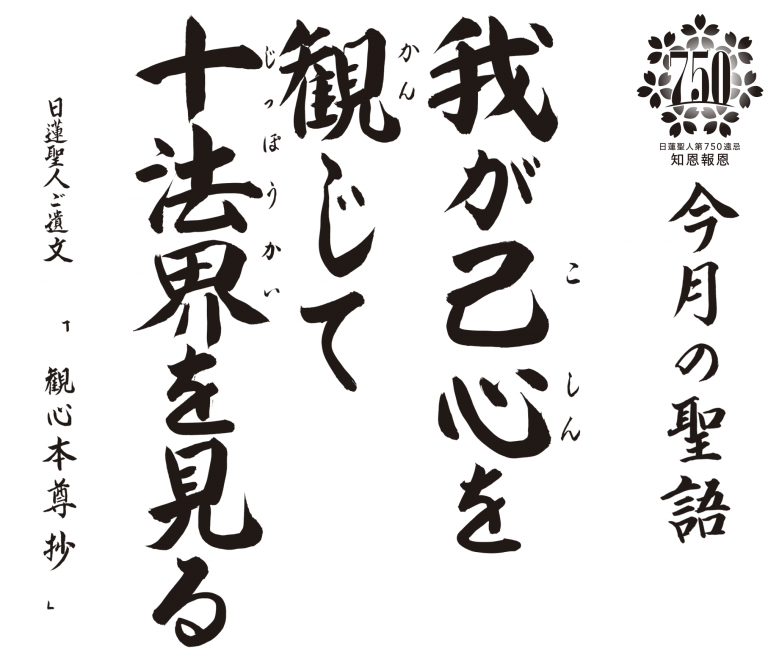 750
日蓮聖人第750遠忌
知恩報恩
今月の聖語
我が己心を
こしん
観じて
かん
十法界を見る
じっぽうかい
日蓮聖人ご遺文
「観心本尊抄」